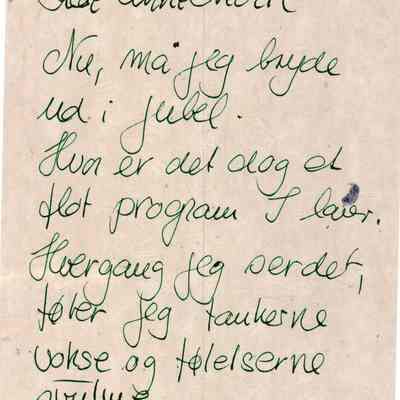 Nu, må jeg bryde
ud i jubel.
Hvor er det dog et
flot program I laver.
Hvergang jeg ser det,
føler jeg tankerne
vokse og følelserne